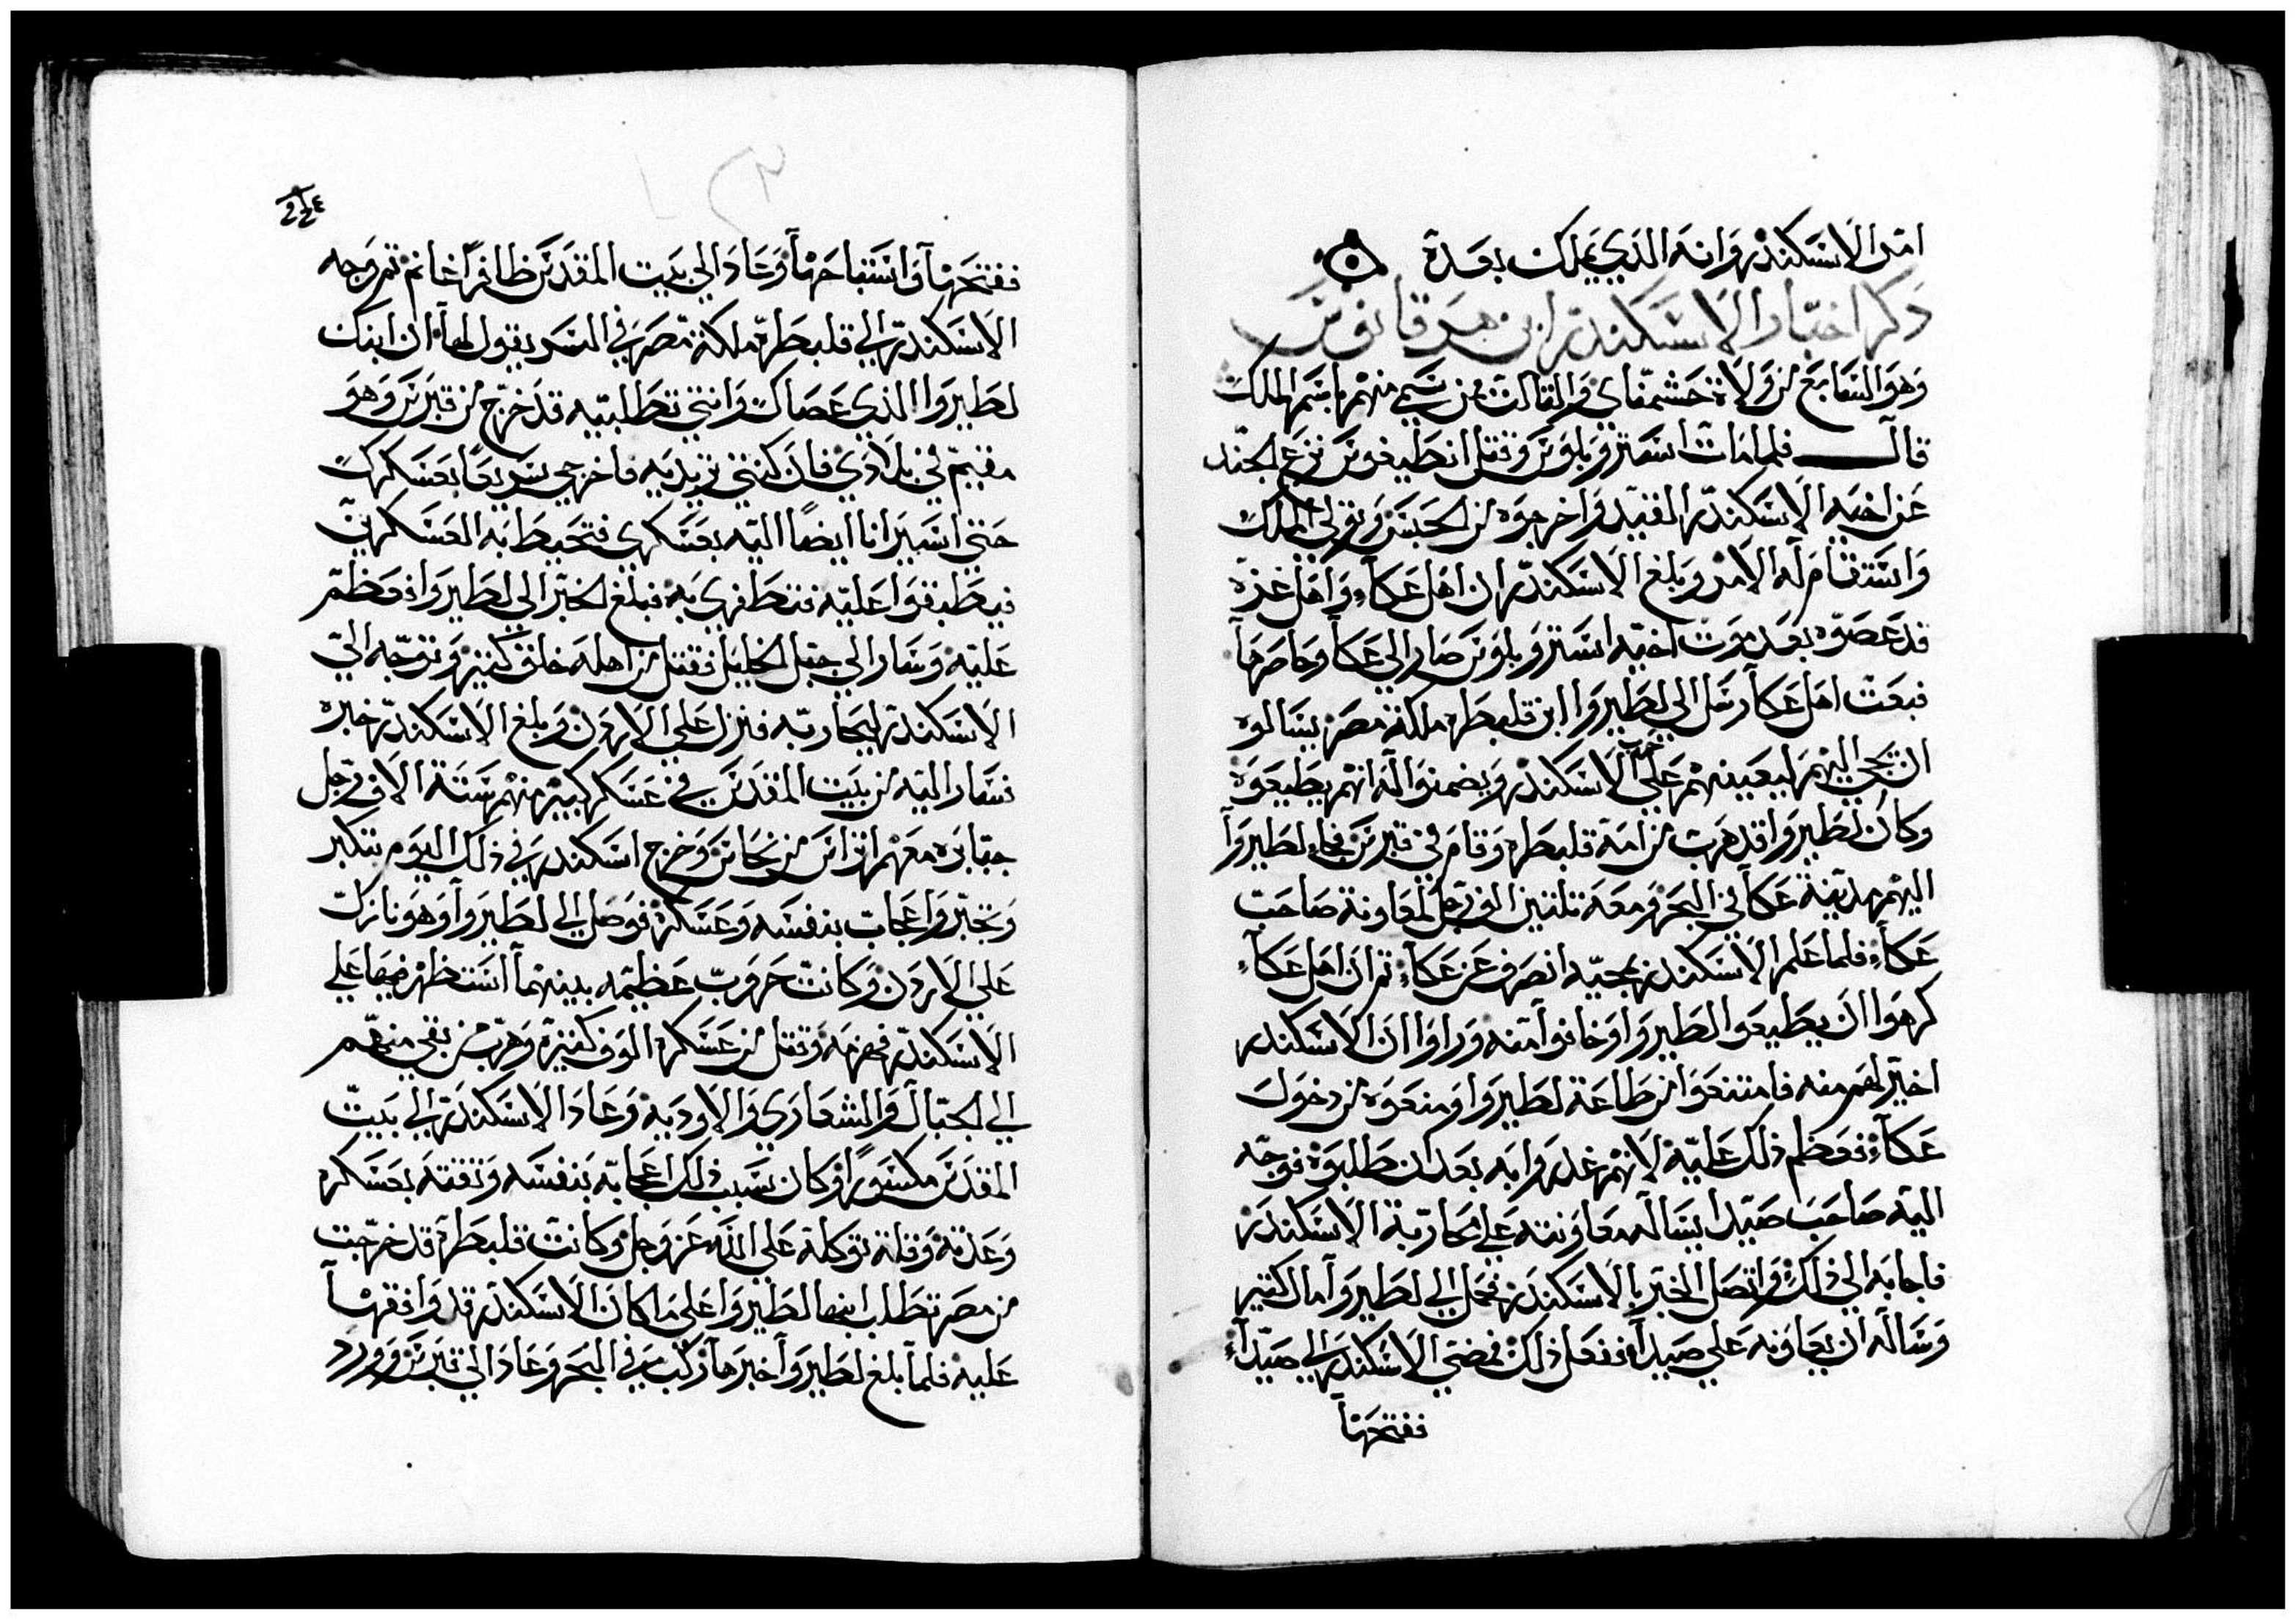 امر الاسكندر وانه الذي يملك بعده
ذكر اخبار الاسكندر ابن هرقانوس
وهو السابع من ولاة حشمناي والثالث ممن سمي منهم باسم الملك
قال فلما مات استروبلوس وقتل انطيغوس نزع الجند
عن اخيه الاسكندر القيد واخرجوه من الحبس وتولى الملك
واستقام له الامر وبلغ الاسكندر ان اهل عكا واهل غزه
قد عصوه بعد موت اخيه استروبلوس صار الى عكا وحاصرها
فبعت اهل عكا رسل الي لطيروا ابن قلبطره ملكة مصر يسالوه
ان يجي اليهم ليعينهم على حرب الاسكندر ويضمنوا له انهم يطيعوه
وكان لطيروا قد هرب من امه قلبطره وقام في قبرس فجاء لطيروا
اليهم مدينة عكا في البحر ومعه تلتين الف رجل لمعاونة صاحب
عكا فلما علم الاسكندر بمجيه انصرف عن عكا ثم ان اهل عكا
كرهوا ان يطيعوا لطيروا وخافوا منه وراوا ان الاسكندر
اخير لهم منه فامتنعوا من طاعة لطيروا ومنعوه من دخول
عكا فعظم ذلك عليه لانهم غدروا به بعد ان طلبوه فوجه
اليه صاحب صيدا يساله معاونته على محاربة الاسكندر
فاجابه الى ذلك واتصل الخبر بالاسكندر فحمل الي لطيروا مال كتير
وساله ان يعاونه علي صيدا ففعل ذلك فمضى الاسكندر الي صيدا
ففتحها
٢٢٤
ففتحها واستباحها وعاد الي بيت المقدس ظافرا غانم تم وجه
الاسكندر الي قلبطره ملكة مصر في السر يقول لها ان ابنك
لطيروا الذي عصاك وانتي تطلبيه قد خرج من قبرس وهو
مقيم في بلادي فان كنتي تريديه فاخرجي سريعا بعسكرك
حتى اسير انا ايضا اليه بعسكري فتحيط به العسكرين
فيطبقوا عليه فتظفري به فبلغ الخبر الي لطيروا فعظم
عليه وسار الي جبل الخليل فقتل من اهله خلق كتير وتوجه الي
الاسكندر ليحاربه فنزل علي الاردن وبلغ الاسكندر خبره
فسار اليه من بيت المقدس في عسكر كبير منهم ستة الاف رجل
جبابره معهم اتراس من نحاس وخرج اسكندر في ذلك اليوم بتكبر
وتجبر واعجاب بنفسه وعسكره فوصل الي لطيروا وهو نازل
علي الاردن وكانت حروب عظيمه بينهما استظهر فيها علي
الاسكندر فهزمه وقتل من عسكره الوف كتيره وهرب من بقي منهم
الي الجبال والشعاري والاوديه وعاد الاسكندر الي بيت
المقدس مكسورا وكان سبب ذلك اعجابه بنفسه وثقته بعسكره
وعدته وقلة توكله على الله عز وجل وكانت قلبطره قد خرجت
من مصر تطلب ابنها لطيروا على ما كان الاسكندر قد وافقها
عليه فلما بلغ لطيروا خبرها ركب في البحر وعاد الي قبرس وورد